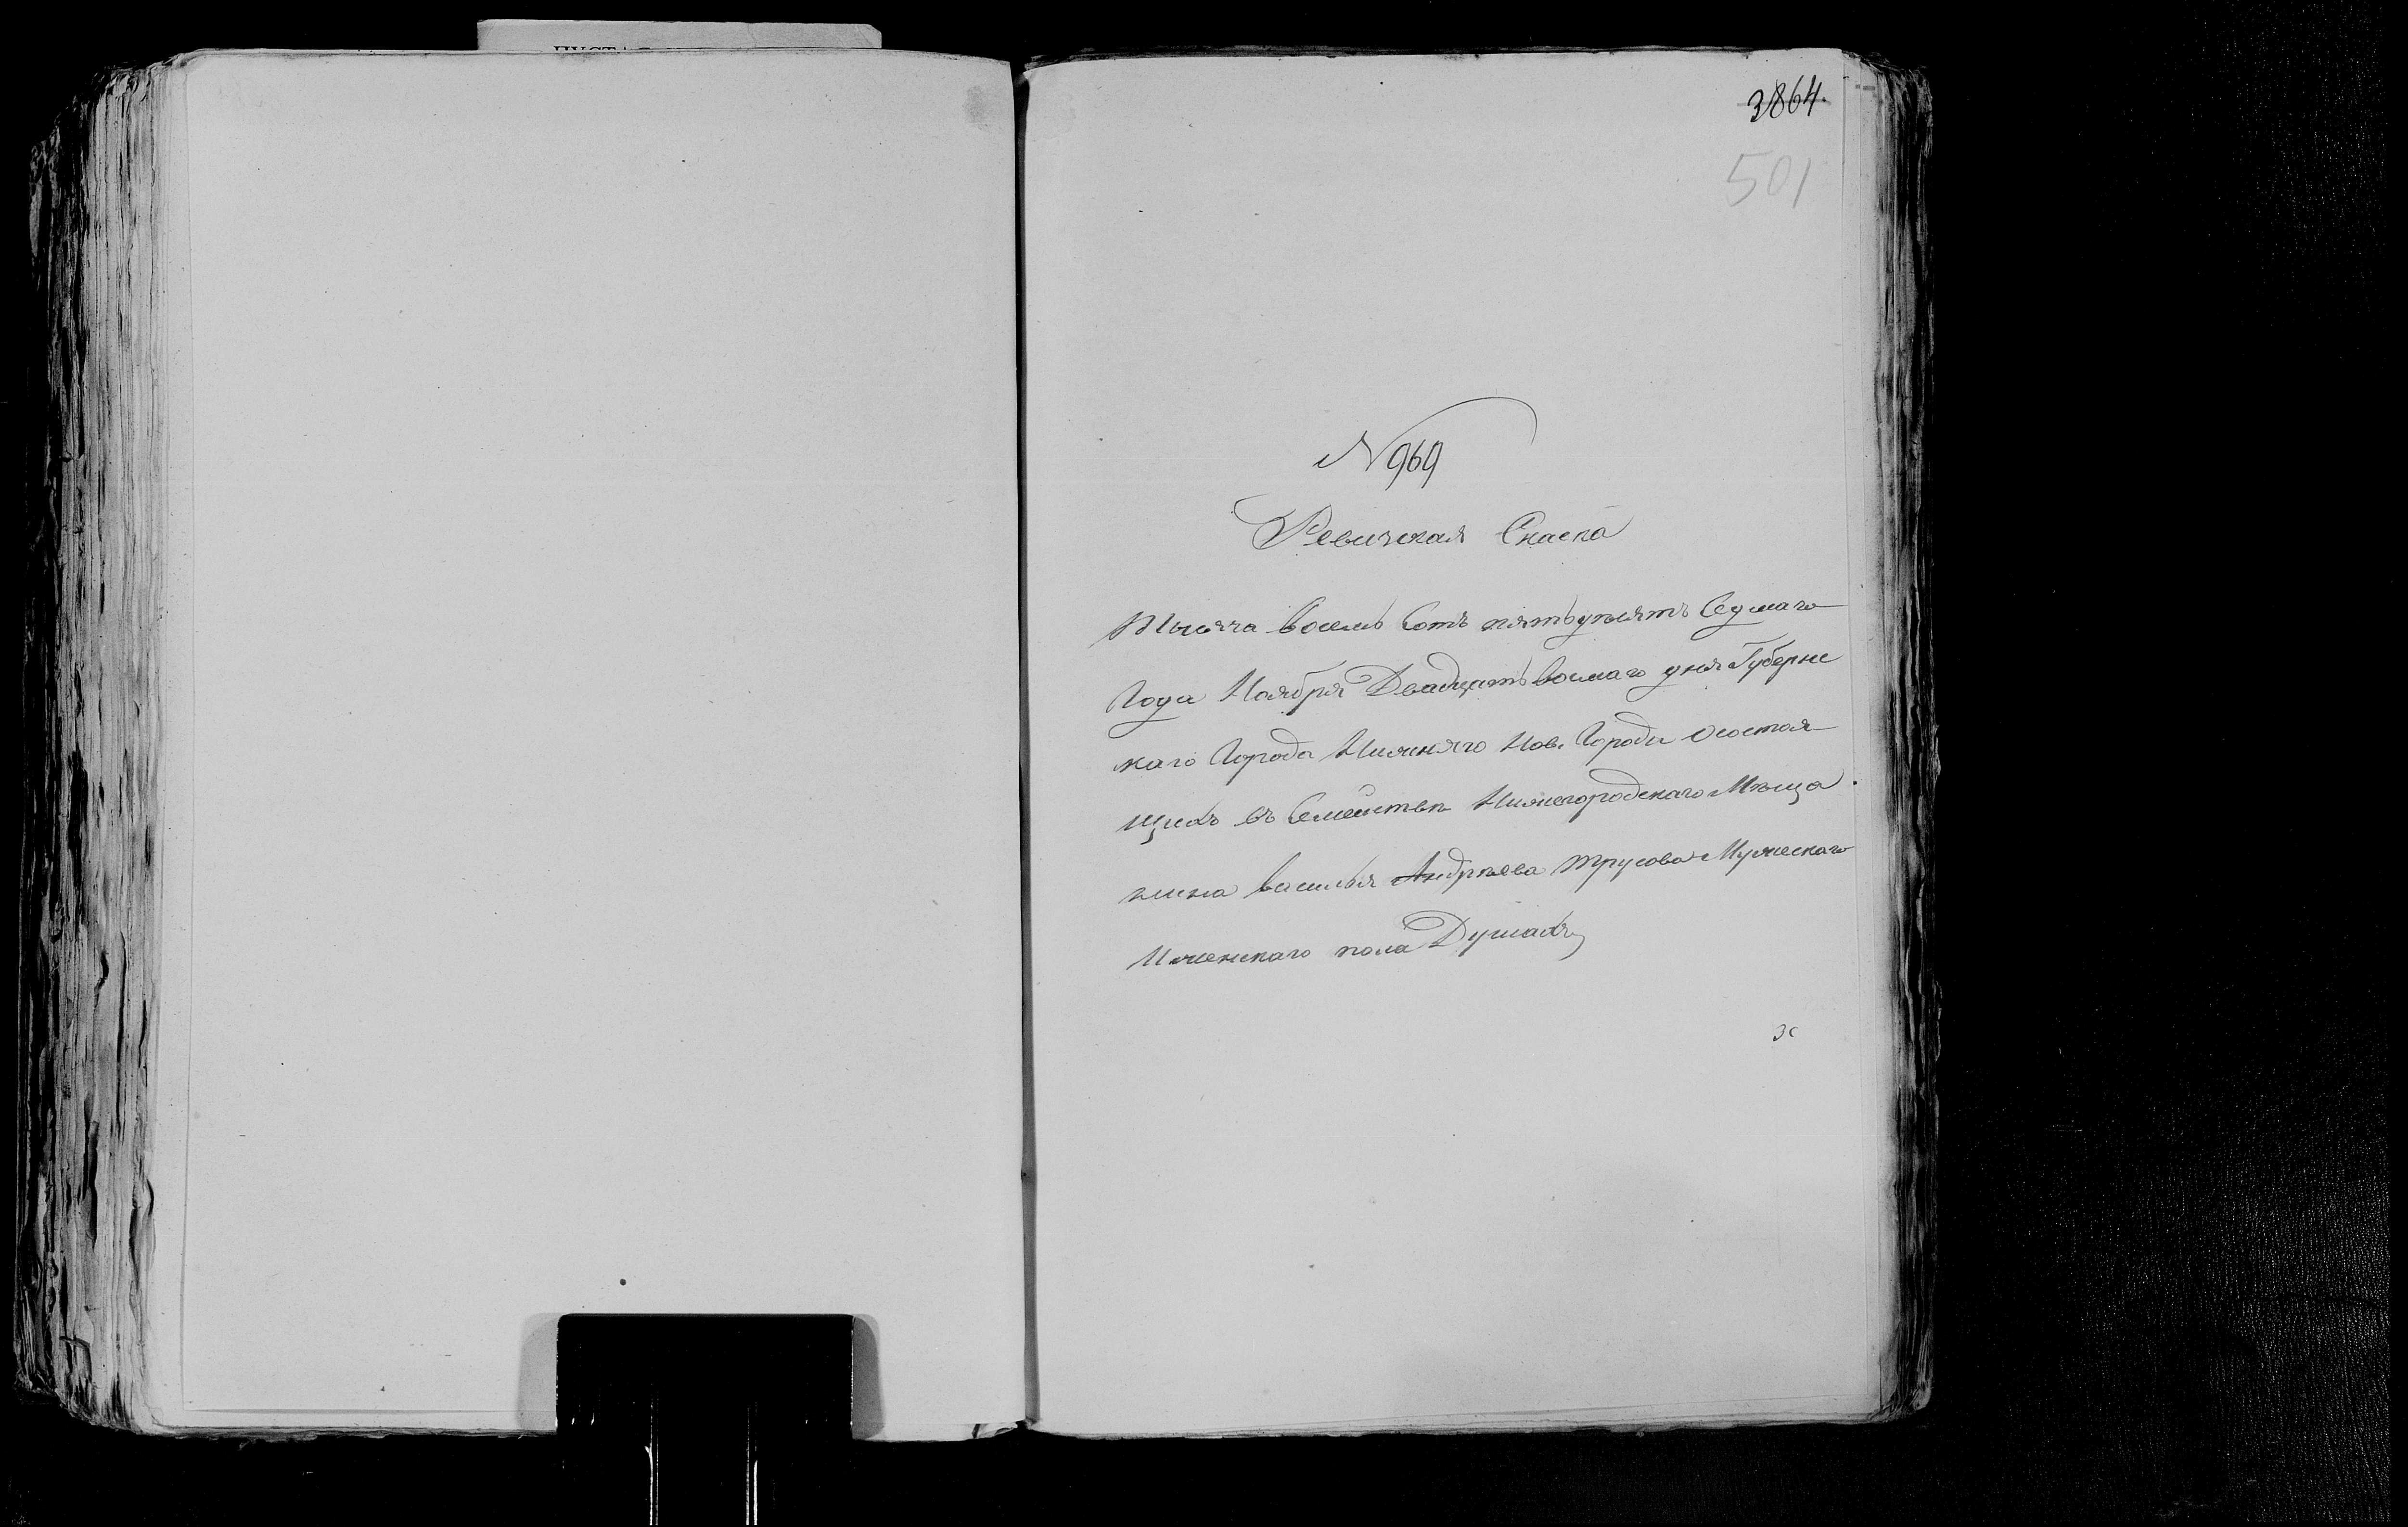 3864.
501
N 969
Ревижская Скаска
Тысяча восемь Сотъ пятьдесятъ Седмаго
Года Ноября Двадцать восмаго дня Губернс
каго Города Нижняго Нов. Города Осостоя
щихъ въ Семействѣ Нижегородскаго Мѣща
нина василья Андрѣева трусова Мужескаго
Иженскаго пола Душахъ